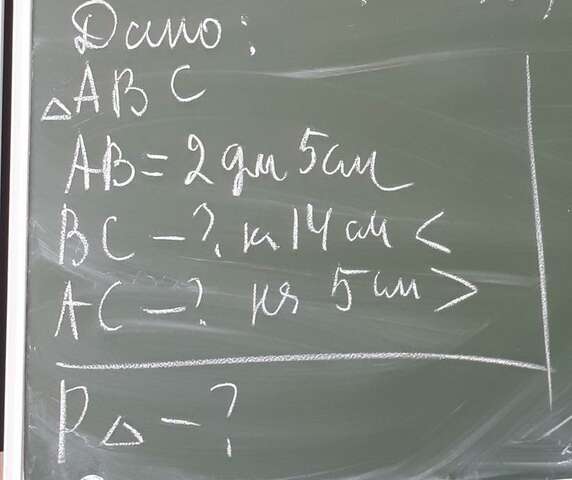 Дано:
△ABC
AB = 2 дм 5 см
BC – ?, на 14 см <
AC – ? на 5 см >
P△ – ?